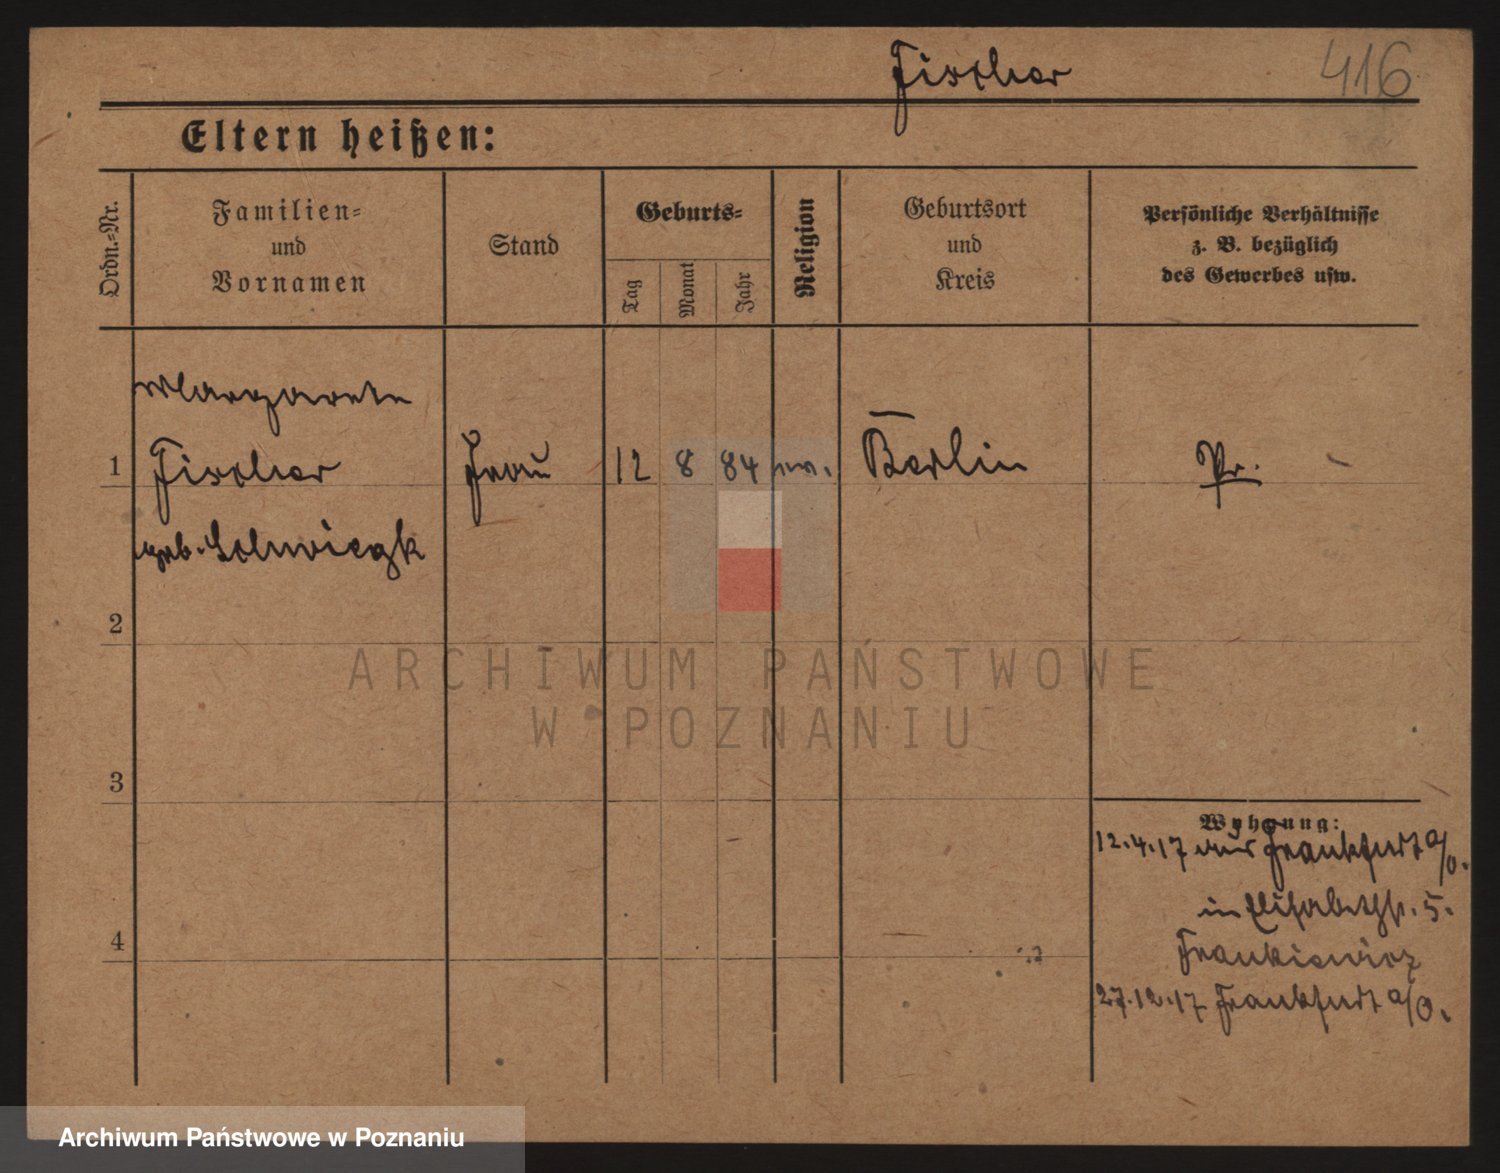 Fischer 416
Eltern heißen:
Ordn.-Nr.
Familien-
und
Vornamen
Stand
Geburts-
Tag
Monat
Jahr
Religion
Geburtsort
und
Kreis
Persönliche Verhältnisse
z. B. bezüglich
des Gewerbes usw.
Margarete
1 Fischer Frau 12 8 84 Berlin Pr.
geb.
2
3
4
Wohnung:
12.4.17 aus Frankfurt a/O.
in Elisabethstr. 5.
Frankiewicz
27.12.17 Frankfurt a/O.
ARCHIWUM PAŃSTWOWE
W POZNANIU
Archiwum Państwowe w Poznaniu